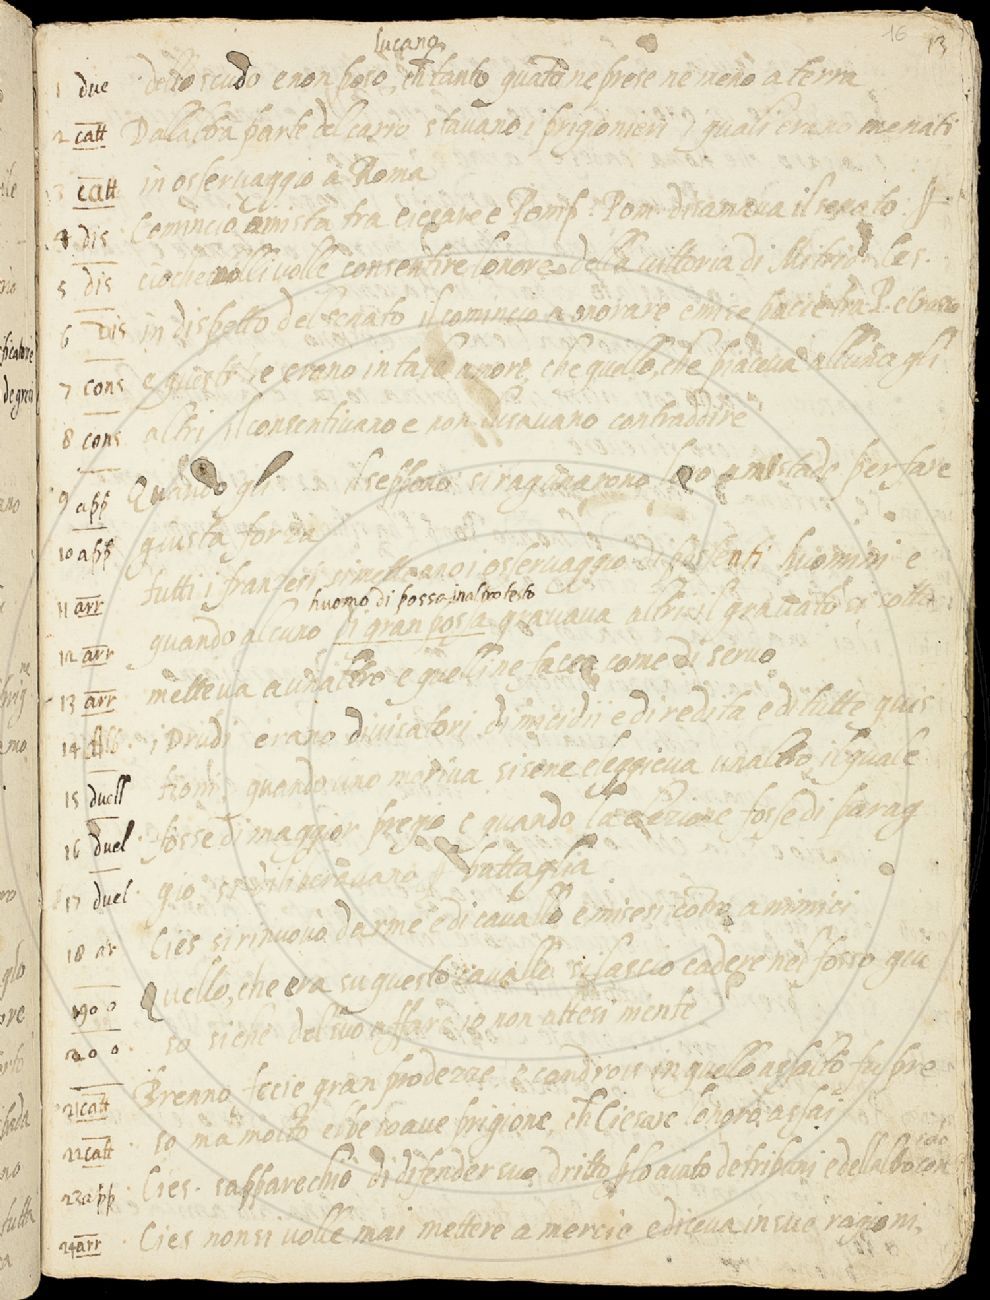 Lucano
16 13
1 due dello scudo e non poso, ch tanto quato ne prese ne meno a terra
2 catt Dalaltra parte del carro stavano i prigionieri i quali erano menati
3 catt in osservaggio a Roma
4 dis Comincio amista tra ciesare e Pomp: Pom: disamava il senato
5 dis cioche no li volle consentire lonore della vittoria di Mitridates.
6 dis in dispetto del senato il comincio a onorare e mise pacce tra P. e
7 cons e questi e erano in tale amore, che quello, che piaceva alluna gli
8 cons altri il consentivano e non usavano contradire
9 app Quando gli il seppono si ragunarono loro amistade per fare
10 app giusta forza
11 arr tutti i franzesi si metteano i osservaggio di possenti huomini e
huomo di possa inal protesto
12 arr quando alcuno di gran possa gravava altrui il gravato si sotto
13 arr metteva a unaltro e quelli ne facea come di servo
14 Alb. i Drudi erano divisatori di micidii e di redita e di tutte quis
15 duell tioni quando uno moriva si sene eleggieva unaltro il quale
16 duel fosse di maggior pregio e quando la elezione fosse di parag
17 duel gio, si diliberavano p battaglia
18 ar Cies si rinuovò darme e di cavallo e misesi cotro a nimici
19 o o Quello, che era su questo cavallo si lascio cadere nel fosso giu
20 o o so siche del suo affare io non attesi niente
21 catt Brenno fecie gran prodezze, e condrois in quello assalto fu pre
22 catt so ma molto ebbe soave prigione, ch Ciesare lonorò assai
23 app Cies. sapparechiò di difender suo dritto p lo aiuto de tribuni e dellalbo con
24 arr Cies non si volle mai mettere a mercie e diceva in sue ragioni,